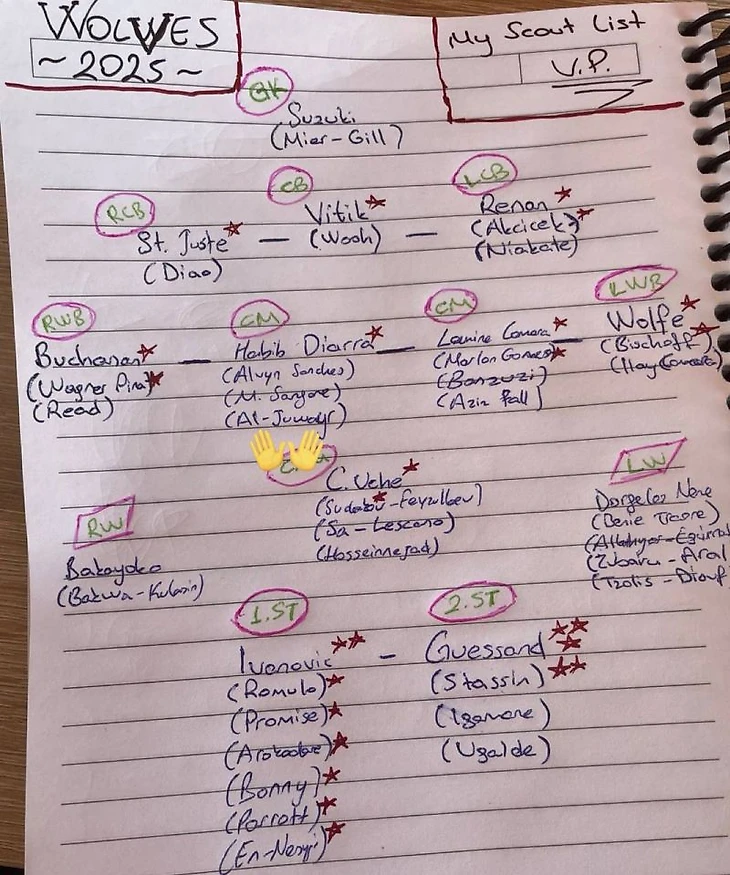 WOLVES
~ 2025 ~
My Scout List
V.P.
GK
Suzuki
(Mier - Gill)
RCB
CB
LCB
St. Juste — Vitik — Renan
(Diao)
(Wooh)
(Akcicek)
(Niakate)
RWB
CM
CM
LWB
Buchanan — Habib Diarra — Lamine Camara — Wolfe
(Wagner Pina)
(Read)
(Alvyn Sanches)
(M. Sangare)
(Al-Juwayr)
(Marlon Gomes)
(Banzuzi)
(Aziz Fall)
(Bischoff)
(Hay Camara)
RW
Bakayoko
(Bakwa -
C. Uche
(Sudakov - Feyzullaev)
(Sa - Lescano)
(Hosseinnejad)
LW
Dorgeles Nene
(Benie Traore)
(Zubaru - Aral
(Tzolis - Diouf
1.ST
2.ST
Ivanovic - Guessand
(Romulo)
(Promise)
(Arokodare)
(Bonny)
(Parrott)
(En-Nesyri)
(Stassin)
(Igamane)
(Ugalde)